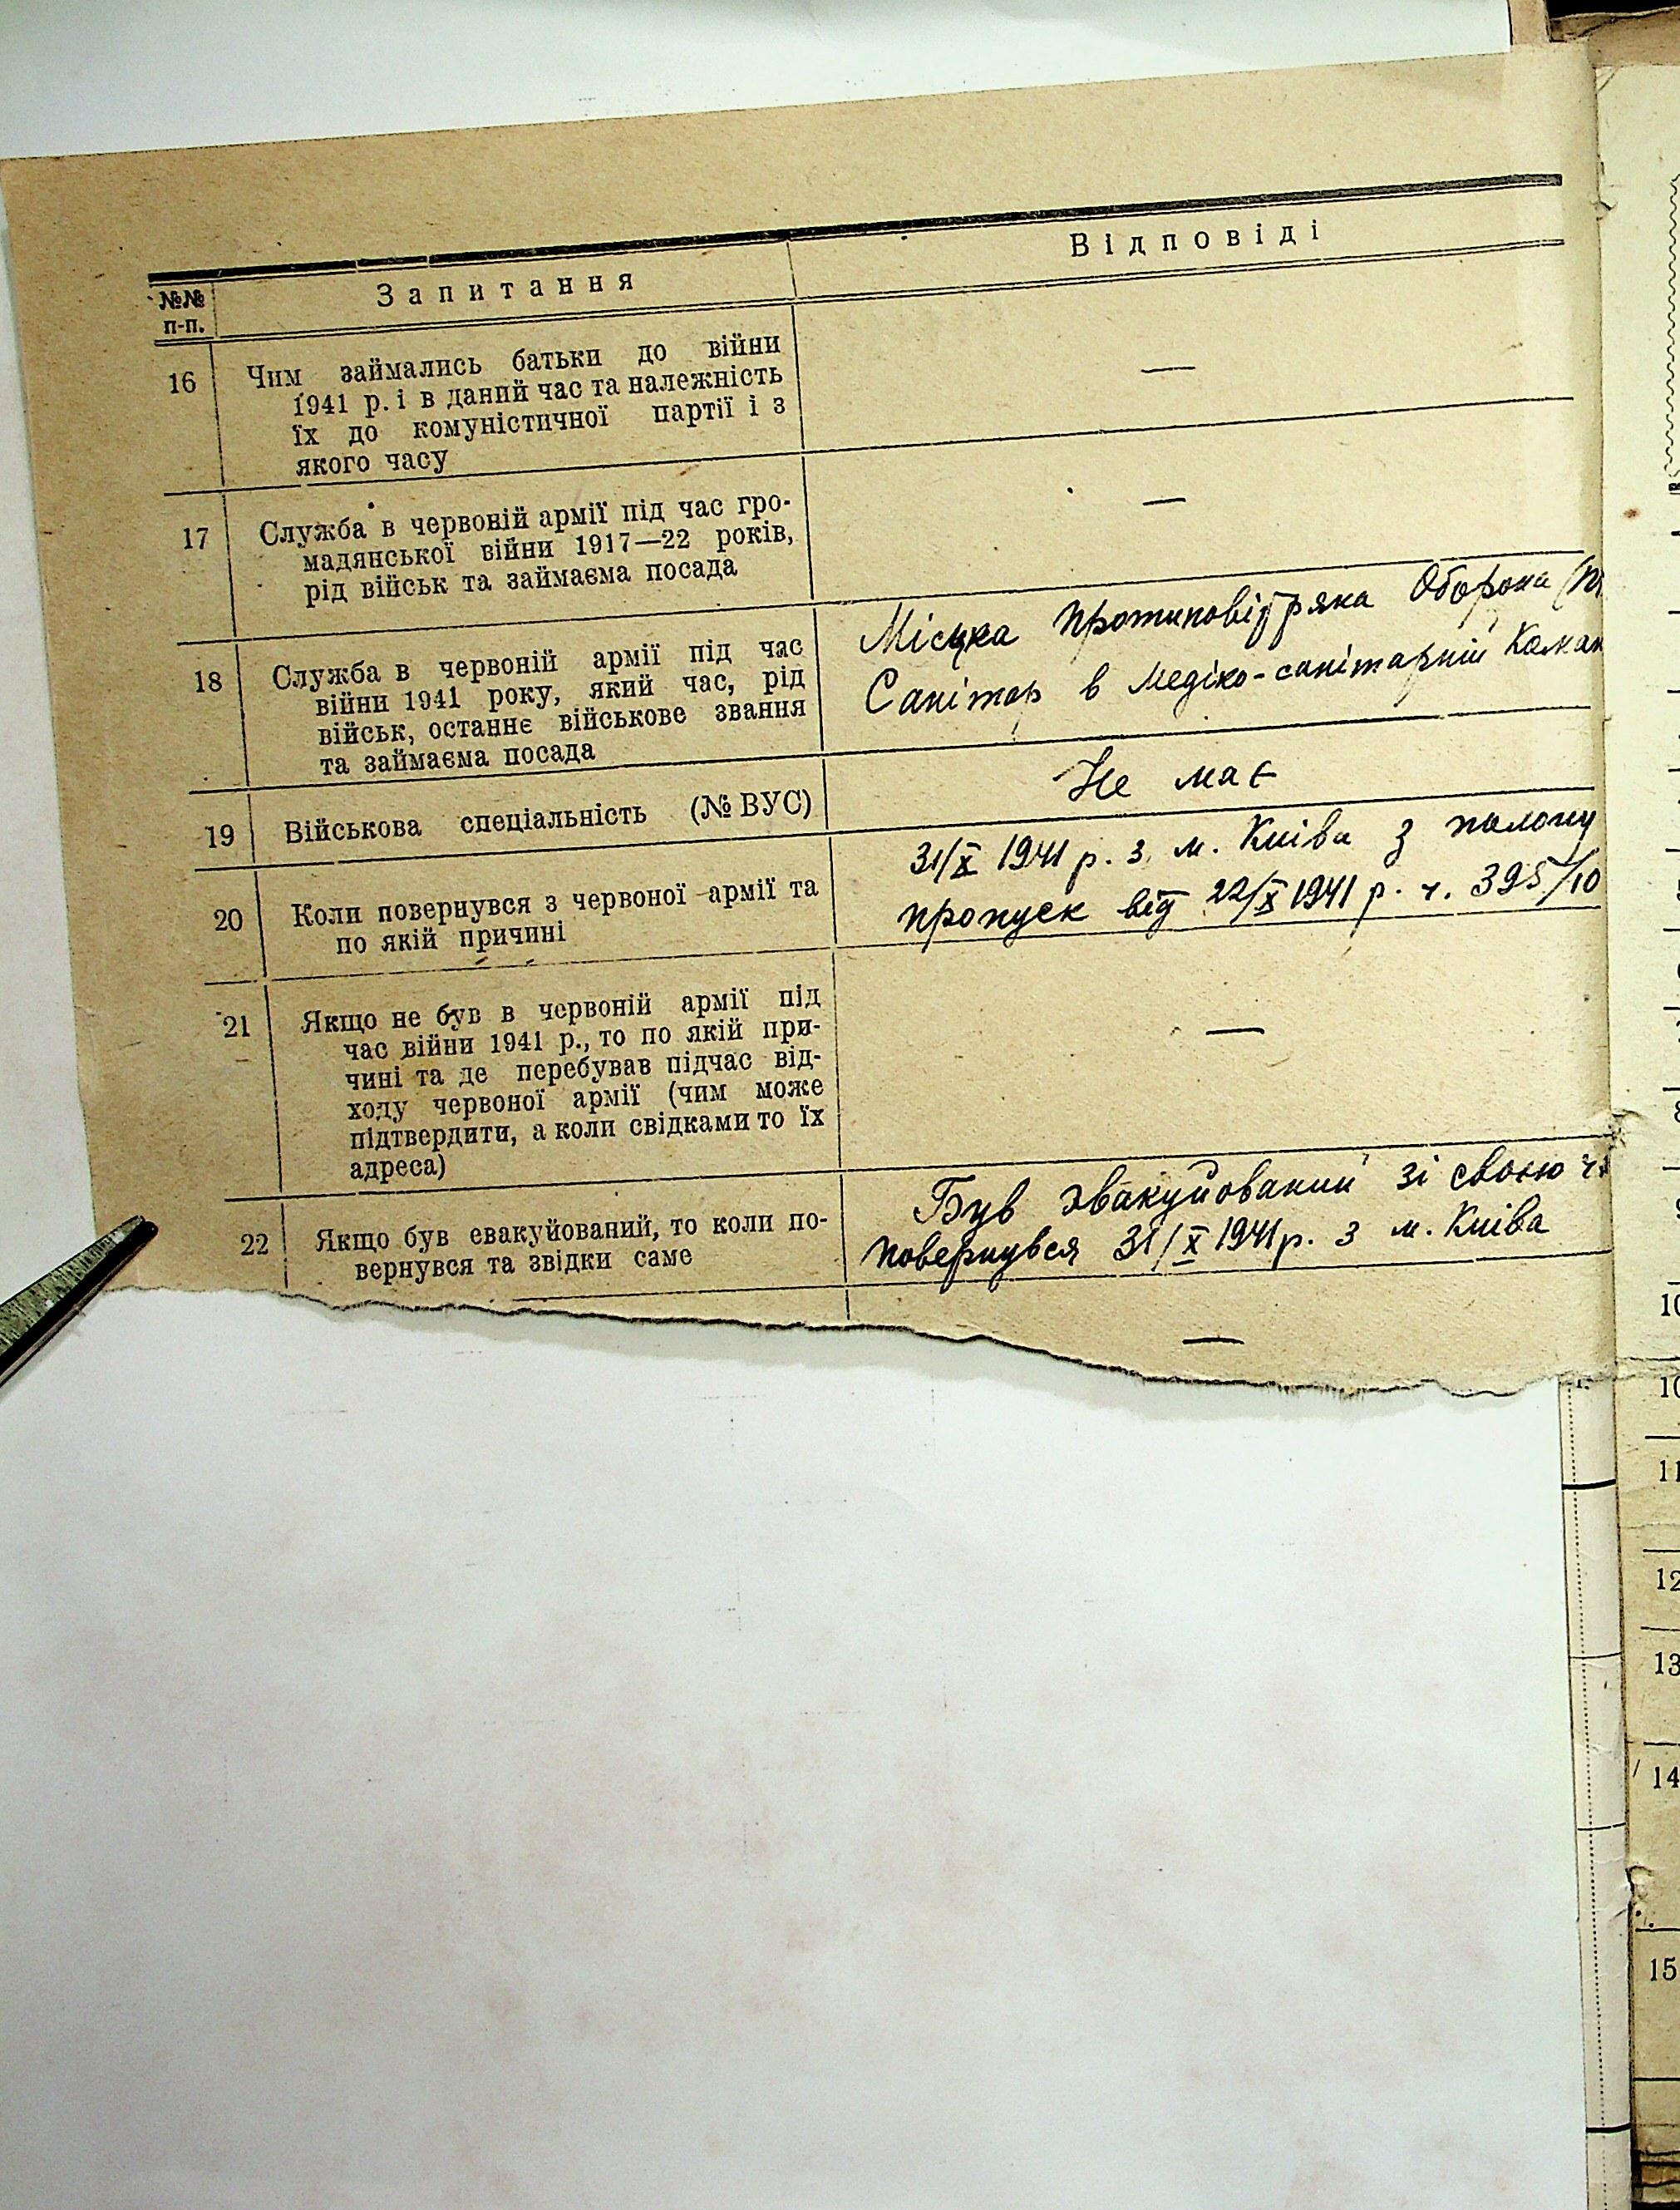 №№ п-п.
Запитання
Відповіді
16
Чим займались батьки до війни
1941 р. і в даний час та належність
їх до комуністичної партії і з
якого часу
—
17
Служба в червоній армії під час гро-
мадянської війни 1917—22 років,
рід військ та займаєма посада
—
18
Служба в червоній армії під час
війни 1941 року, який час, рід
військ, останнє військове звання
та займаєма посада
Місцка Протиповітряка Оборона
Санітар в медіко-санітарній
19
Військова спеціальність (№ ВУС)
Не має
20
Коли повернувся з червоної армії та
по якій причині
31/X 1941 р. з м. Київа з полону
пропуск від 22/X 1941 р. ч. 395/10
21
Якщо не був в червоній армії під
час війни 1941 р., то по якій при-
чині та де перебував підчас від-
ходу червоної армії (чим може
підтвердити, а коли свідками то їх
адреса)
—
22
Якщо був евакуйований, то коли по-
вернувся та звідки саме
Був эвакуйований зі своєю
повернувся 31/X 1941 р. з м. Київа
—
10
10
11
12
13
14
15